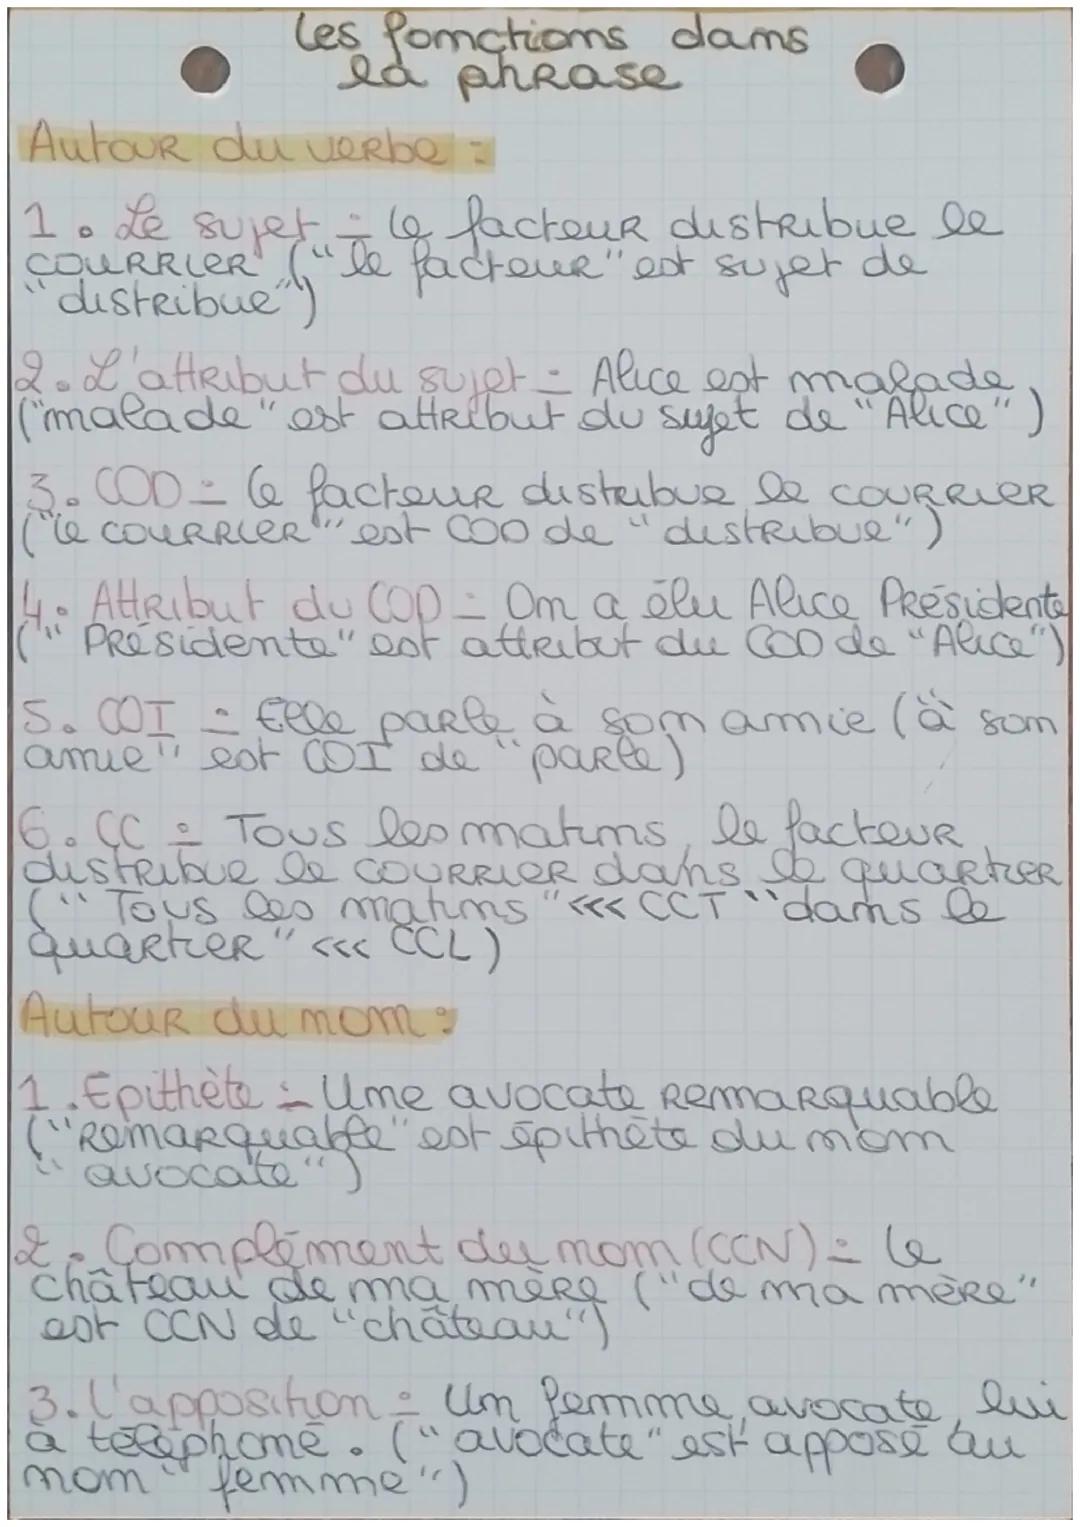 Les fonctions dans
la phrase
Autour du verbe :
1. Le sujet : le facteur distribue le
courrier ("le facteur" est sujet de
"distribue")
2. L'attribut du sujet : Alice est malade
("malade" est attribut du sujet de "Alice")
3. COD : le facteur distribue le courrier
("le courrier" est COD de "distribue")
4. Attribut du COD : On a élu Alice Présidente
("Présidente" est attribut du COD de "Alice")
5. COI : Elle parle à son amie ("à son
amie" est COI de "parle)
6. CC : Tous les matins, le facteur
distribue le courrier dans le quartier
("Tous les matins" <<< CCT "dans le
quartier" <<< CCL)
Autour du nom :
1. Epithète : Une avocate remarquable
("remarquable" est épithète du nom
"avocate")
2. Complément du nom (CCN) : le
château de ma mère ("de ma mère"
est CCN de "château")
3. L'apposition : Un femme, avocate, lui
a téléphoné. ("avocate" est apposé au
nom "femme")